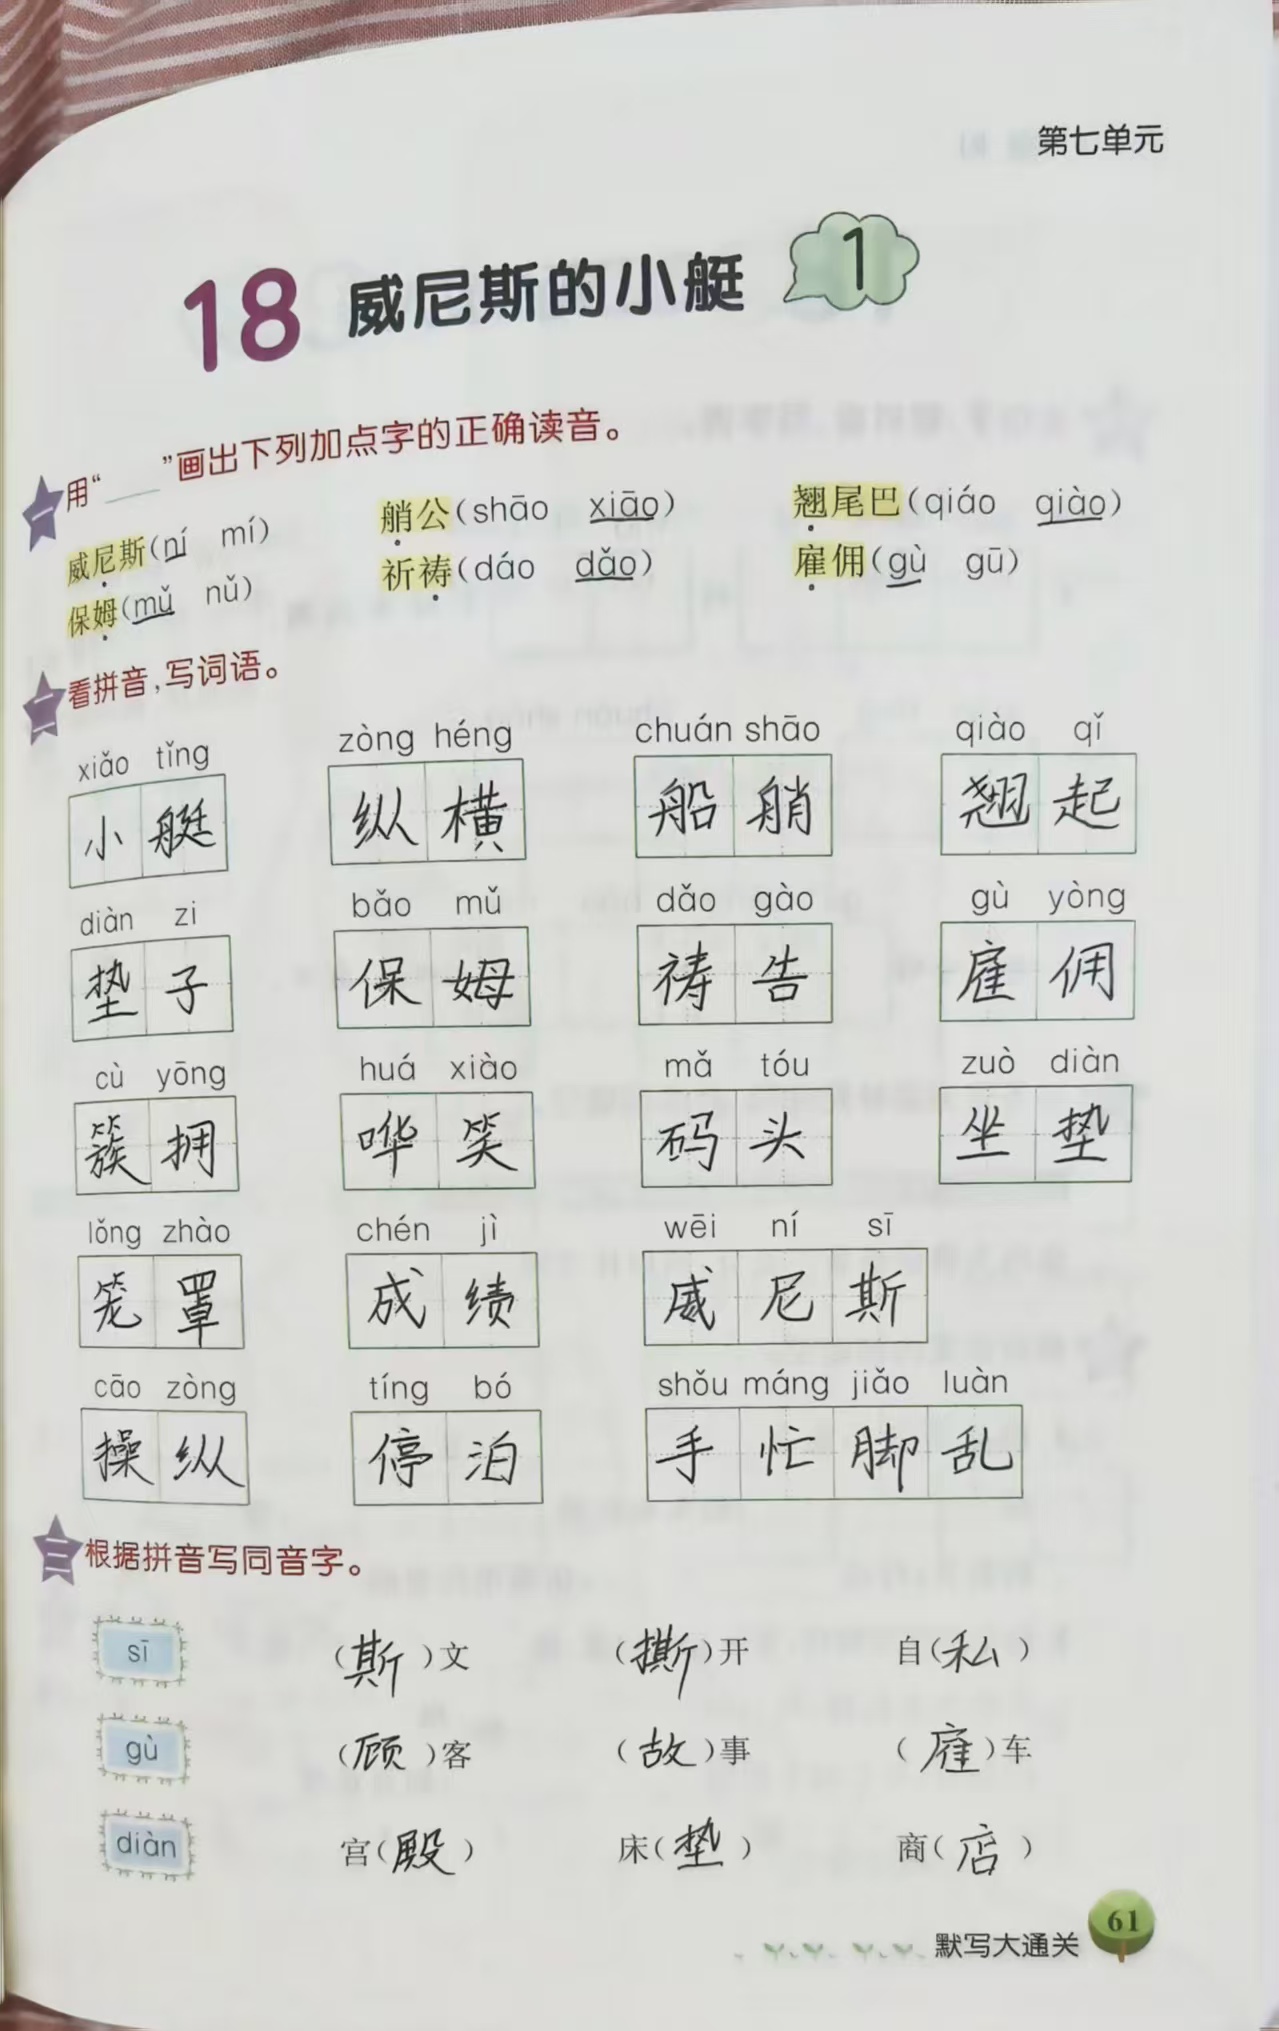 第七单元
18 威尼斯的小艇 1
一 用“___”画出下列加点字的正确读音。
威尼斯(ní mí) 艄公(shāo xiāo) 翘尾巴(qiáo qiào)
保姆(mǔ nǔ) 祈祷(dáo dǎo) 雇佣(gù gū)
二 看拼音,写词语。
xiǎo tǐng zòng héng chuán shāo qiào qǐ
小艇 纵横 船艄 翘起
diàn zi bǎo mǔ dǎo gào gù yòng
垫子 保姆 祷告 雇佣
cù yōng huá xiào mǎ tóu zuò diàn
簇拥 哗笑 码头 坐垫
lǒng zhào chén jì wēi ní sī
笼罩 成绩 威尼斯
cāo zòng tíng bó shǒu máng jiǎo luàn
操纵 停泊 手忙脚乱
三 根据拼音写同音字。
sī (斯)文 (撕)开 自(私)
gù (顾)客 (故)事 (雇)车
diàn 宫(殿) 床(垫) 商(店)
默写大通关 61